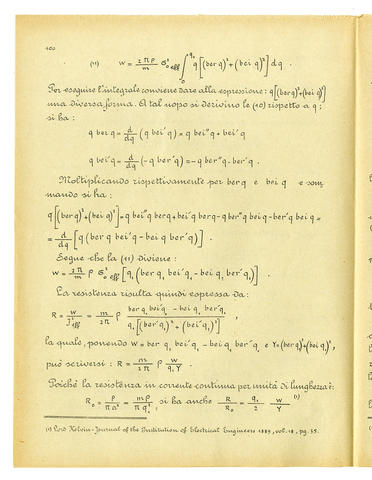 100
(11) W = 2πρ/m σ²₀ eff ∫₀^q₁ q[(ber q)² + (bei q)²] dq .
Per eseguire l'integrale conviene dare alla espressione: q[(ber q)²+(bei q)²]
una diversa forma. A tal uopo si derivino le (10) rispetto a q ;
si ha :
q ber q = d/dq (q bei′q) = q bei″q + bei′q
q bei q = d/dq (-q ber′q) = -q ber″q - ber′q .
Moltiplicando rispettivamente per ber q e bei q e som
mando si ha :
q[(ber q)²+(bei q)²] = q bei″q ber q + bei′q ber q - q ber″q bei q - ber′q bei q =
= d/dq [q (ber q bei′q - bei q ber′q)] .
Segue che la (11) diviene :
W = 2π/m ρ σ²₀ eff [q₁ (ber q₁ bei′q₁ - bei q₁ ber′q₁)] .
La resistenza risulta quindi espressa da:
R = W/J²eff = m/2π ρ (ber q₁ bei′q₁ - bei q₁ ber′q₁)/(q₁[(ber′q₁)² + (bei′q₁)²]) ,
la quale, ponendo w = ber q₁ bei′q₁ - bei q₁ ber′q₁ e Y=(ber′q₁)²+(bei′q₁)²,
può scriversi : R = m/2π ρ w/q₁Y .
Poichè la resistenza in corrente continua per unità di lunghezza è:
R₀ = ρ/πa² = mρ/πq₁² , si ha anche R/R₀ = q₁/2 w/Y ⁽¹⁾
(1) Lord Kelvin - Journal of the Institution of Electrical Engineers 1889, vol. 18, pg. 35.